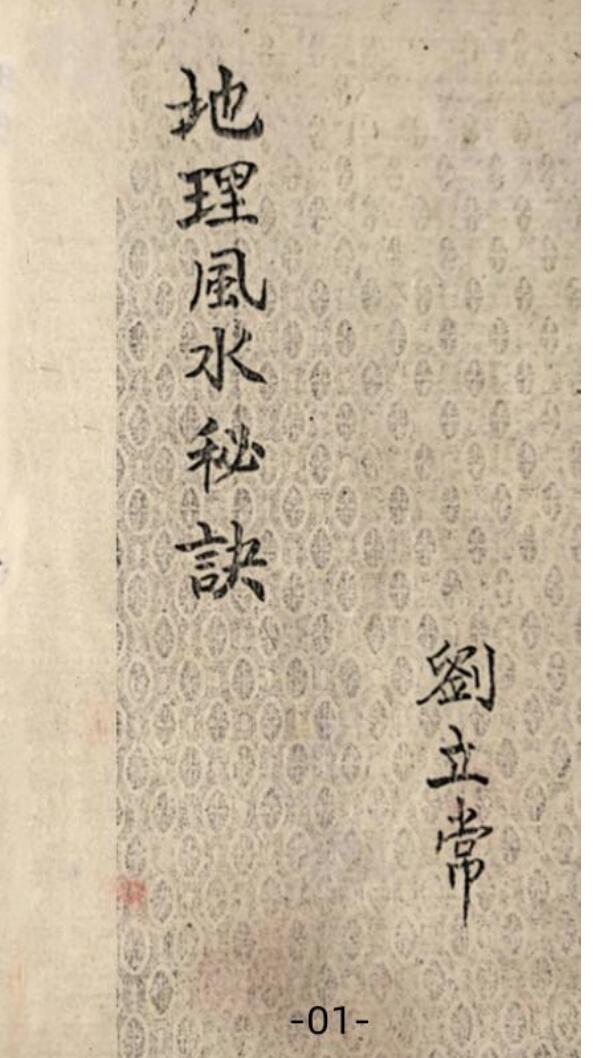 地理風水秘訣
劉立常
-01-